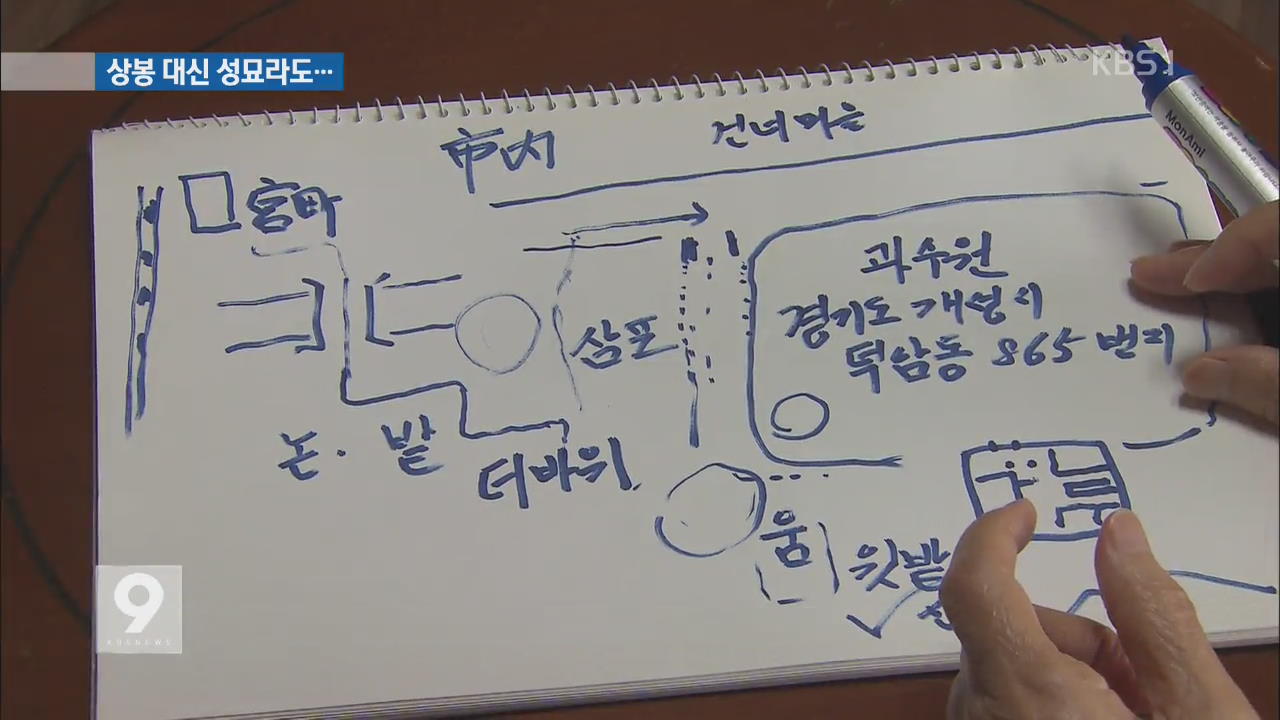 상봉 대신 성묘라도…
KBS1
市内
건너마을
MonAmi
과수원
경기도 개성시
덕암동 865 번지
삼포
논. 밭
더바위
움
윗밭
9
KBS NEWS